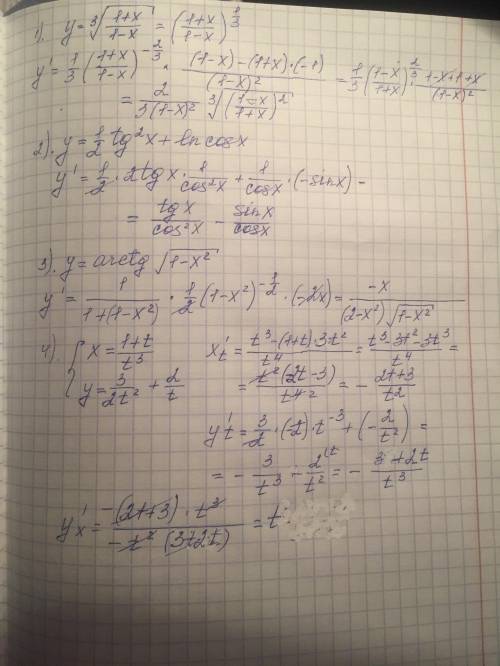 1). y = ∛((1+x)/(1-x)) = ((1+x)/(1-x))^(1/3)
y' = 1/3 ((1+x)/(1-x))^(-2/3) · ((1-x)-(1+x)·(-1))/(1-x)² = 1/3 ((1-x)/(1+x))^(2/3) · (1-x+1+x)/(1-x)²
= 2/(3(1-x)²) ∛(((1-x)/(1+x))²)
2). y = 1/2 tg²x + ln cosx
y' = 1/2 · 2tgx · 1/cos²x + 1/cosx · (-sinx) =
= tgx/cos²x - sinx/cosx
3). y = arctg √(1-x²)
y' = 1/(1+(1-x²)) · 1/2 (1-x²)^(-1/2) · (-2x) = -x/((2-x²)√(1-x²))
4). { x = (1+t)/t³   x't = (t³-(1+t)·3t²)/t⁴ = (t³-3t²-3t³)/t⁴ =
y = 3/(2t²) + 2/t   = t²(2t-3)/t⁴² = - (2t+3)/t²
y't = 3/2 · (-2) · t⁻³ + (-2/t²) =
= - 3/t³ - 2\t/t² = - (3+2t)/t³
y'x = -(2t+3)·t³/(-t²(3+2t)) = t